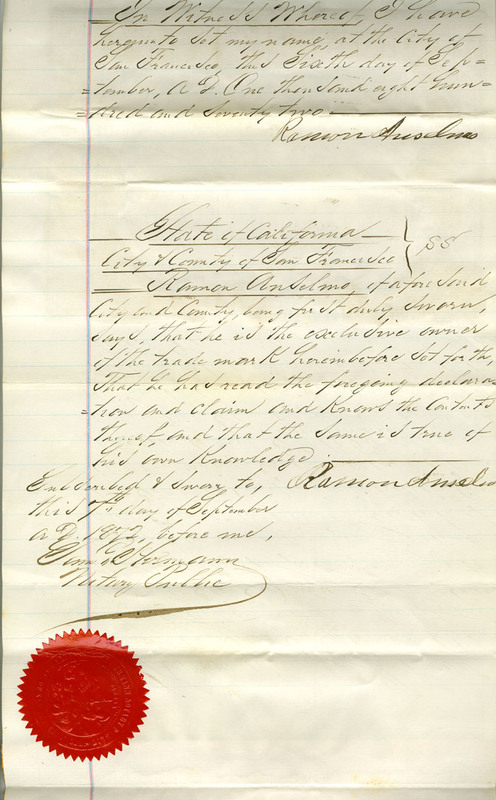 In Witness Whereof, I have
hereunto set my name, at the City of
San Francisco, this Sixth day of Sep=
=tember, A.D. One thousand eight hun=
=dred and seventy two.
Ramon Anselmo
State of California
City & County of San Francisco } SS
Ramon Anselmo, of aforesaid
City and County, being first duly sworn,
says, that he is the exclusive owner
of the trade mark hereinbefore set forth,
that he has read the foregoing declara
=tion and claim and knows the contents
thereof and that the same is true of
his own knowledge.
Subscribed & sworn to, Ramon Anselmo
this 7th day of September
A.D. 1872, before me,
Notary Public